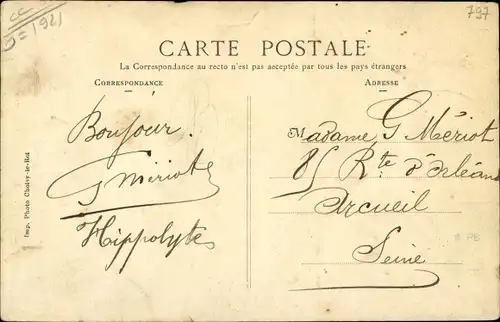 CARTE POSTALE
La Correspondance au recto n'est pas acceptée par tous les pays étrangers
CORRESPONDANCE
ADRESSE
Bonjour.
G Mériot
Hippolyte
Madame G Mériot
85 Rte d'Orléans
Arcueil
Seine
Imp. Photo Choisy-le-Roi
797
1921